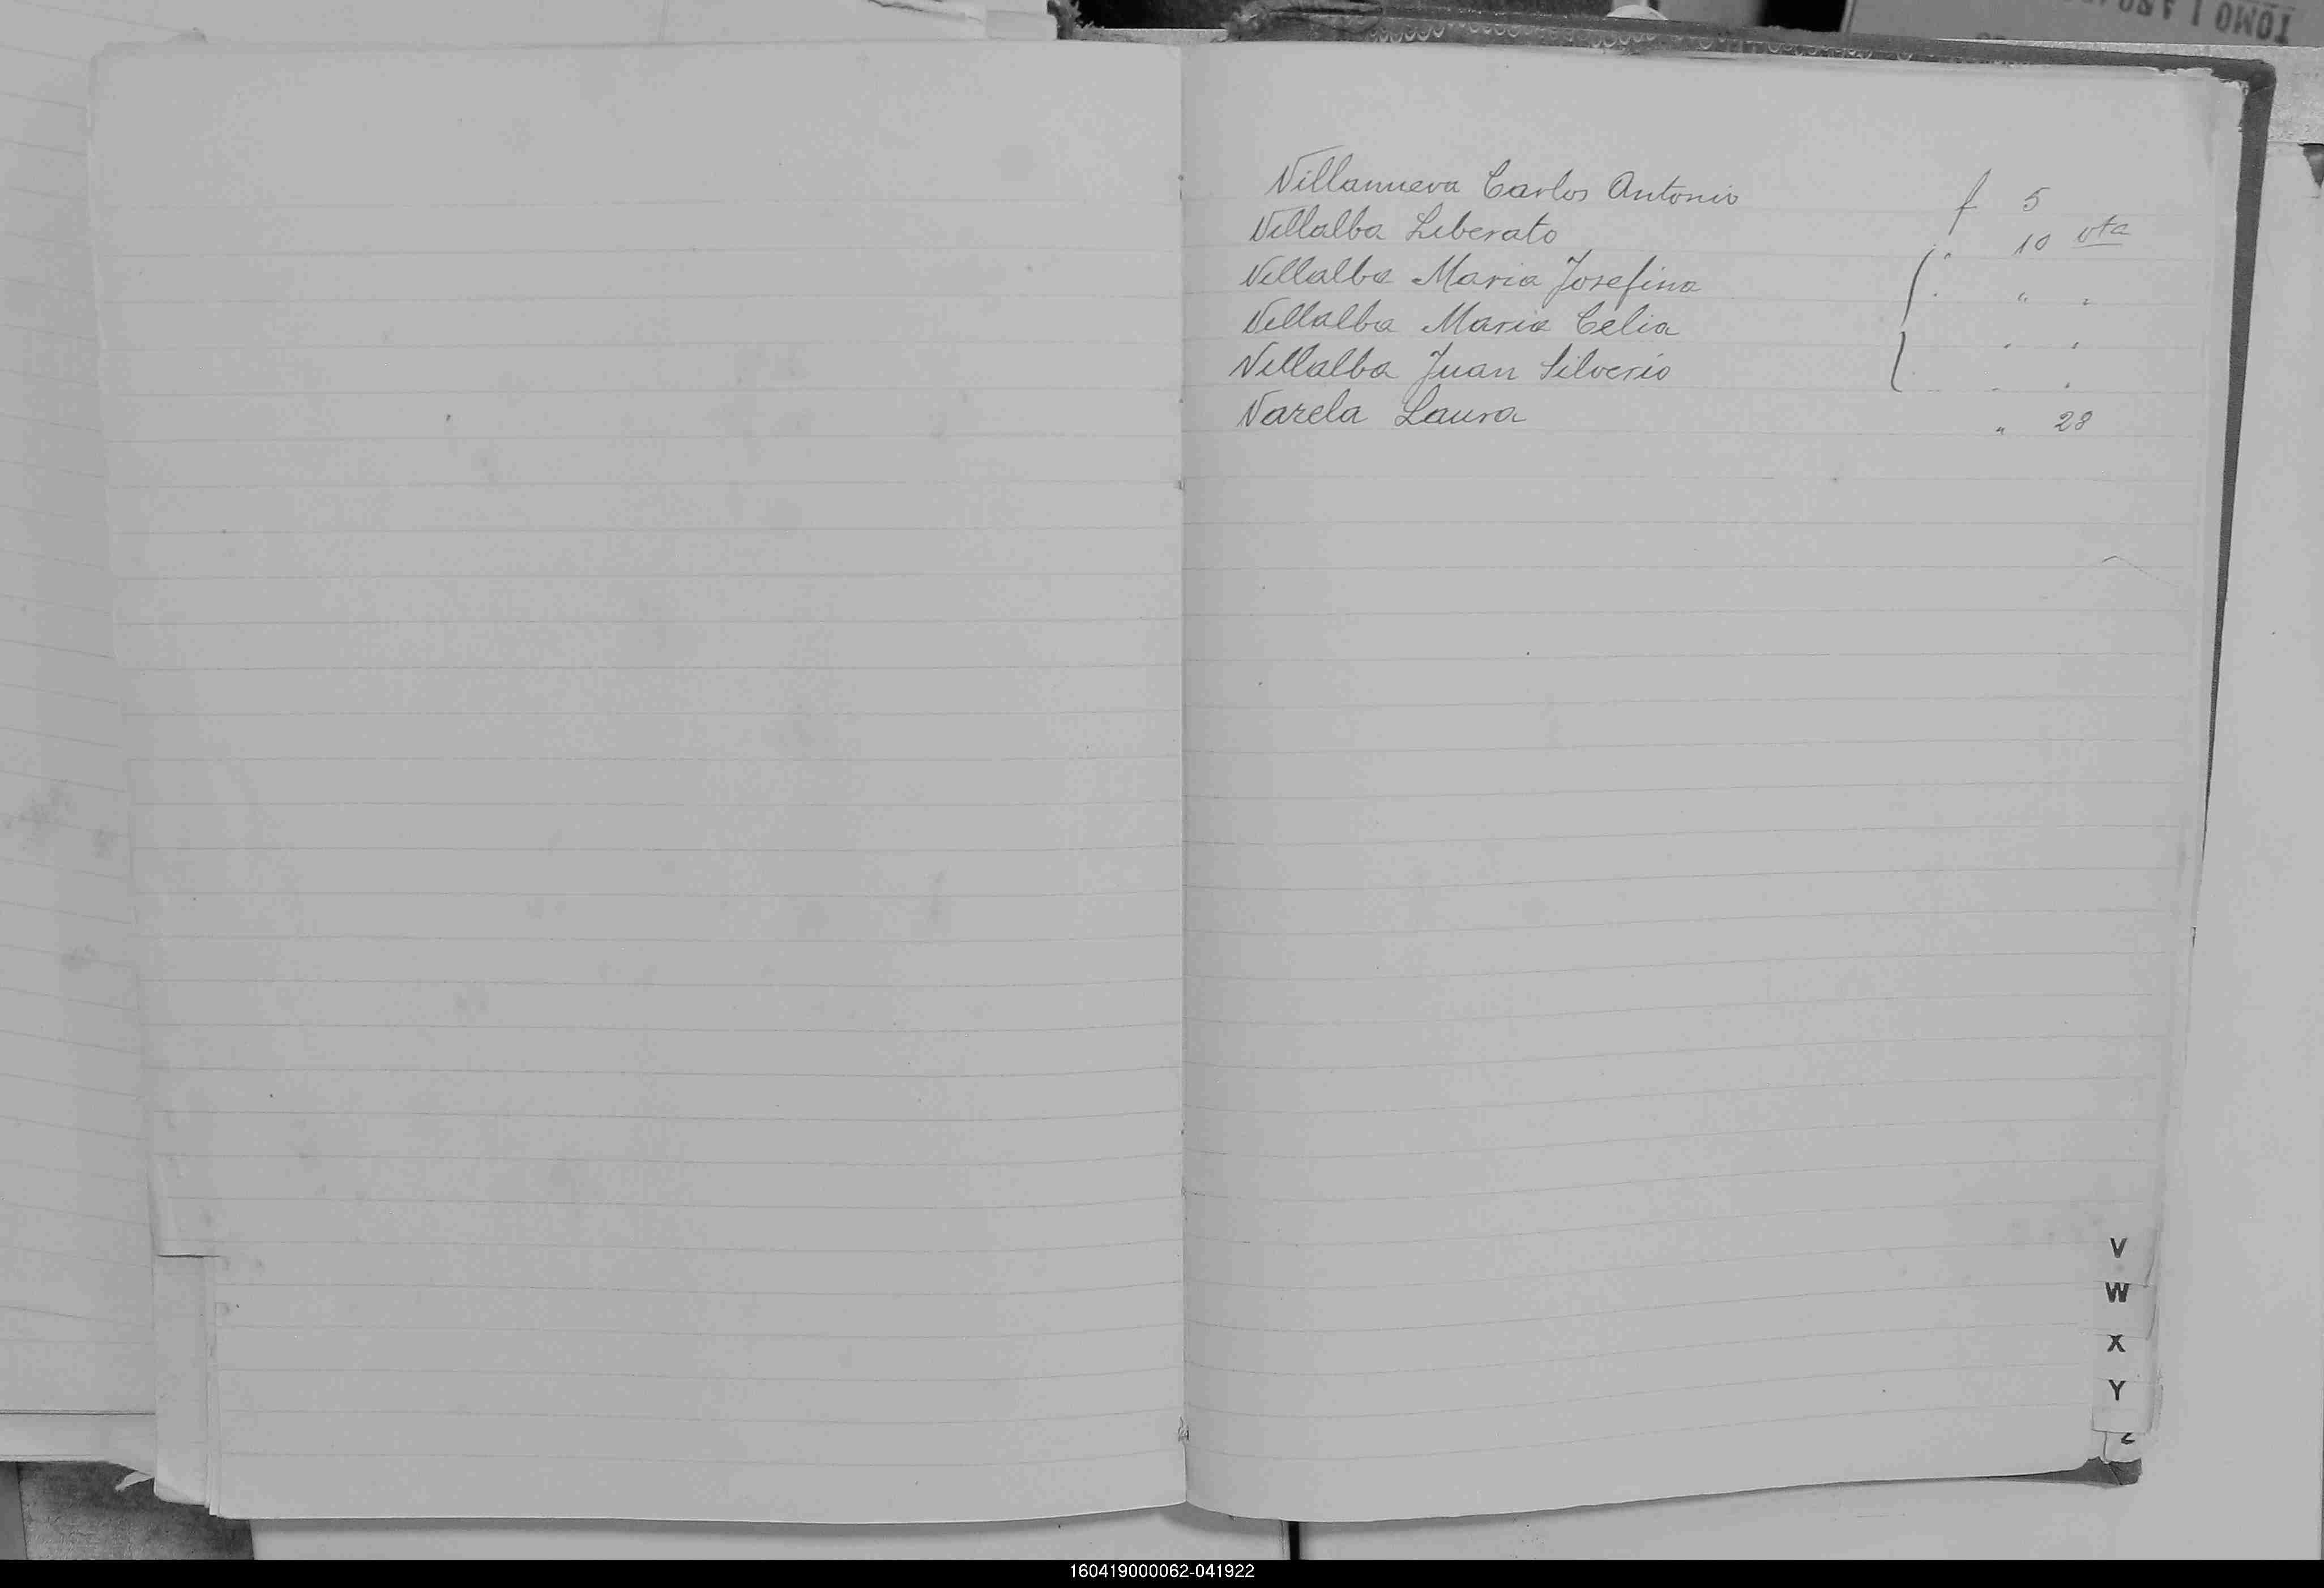 TOMO I
Villanueva Carlos Antonio f 5
Villalba Liberato " 10 vta
Villalba Maria Josefina " " "
Villalba Maria Celia " "
Villalba Juan Silverio " " "
Varela Laura " 28
V
W
X
Y
160419000062-041922